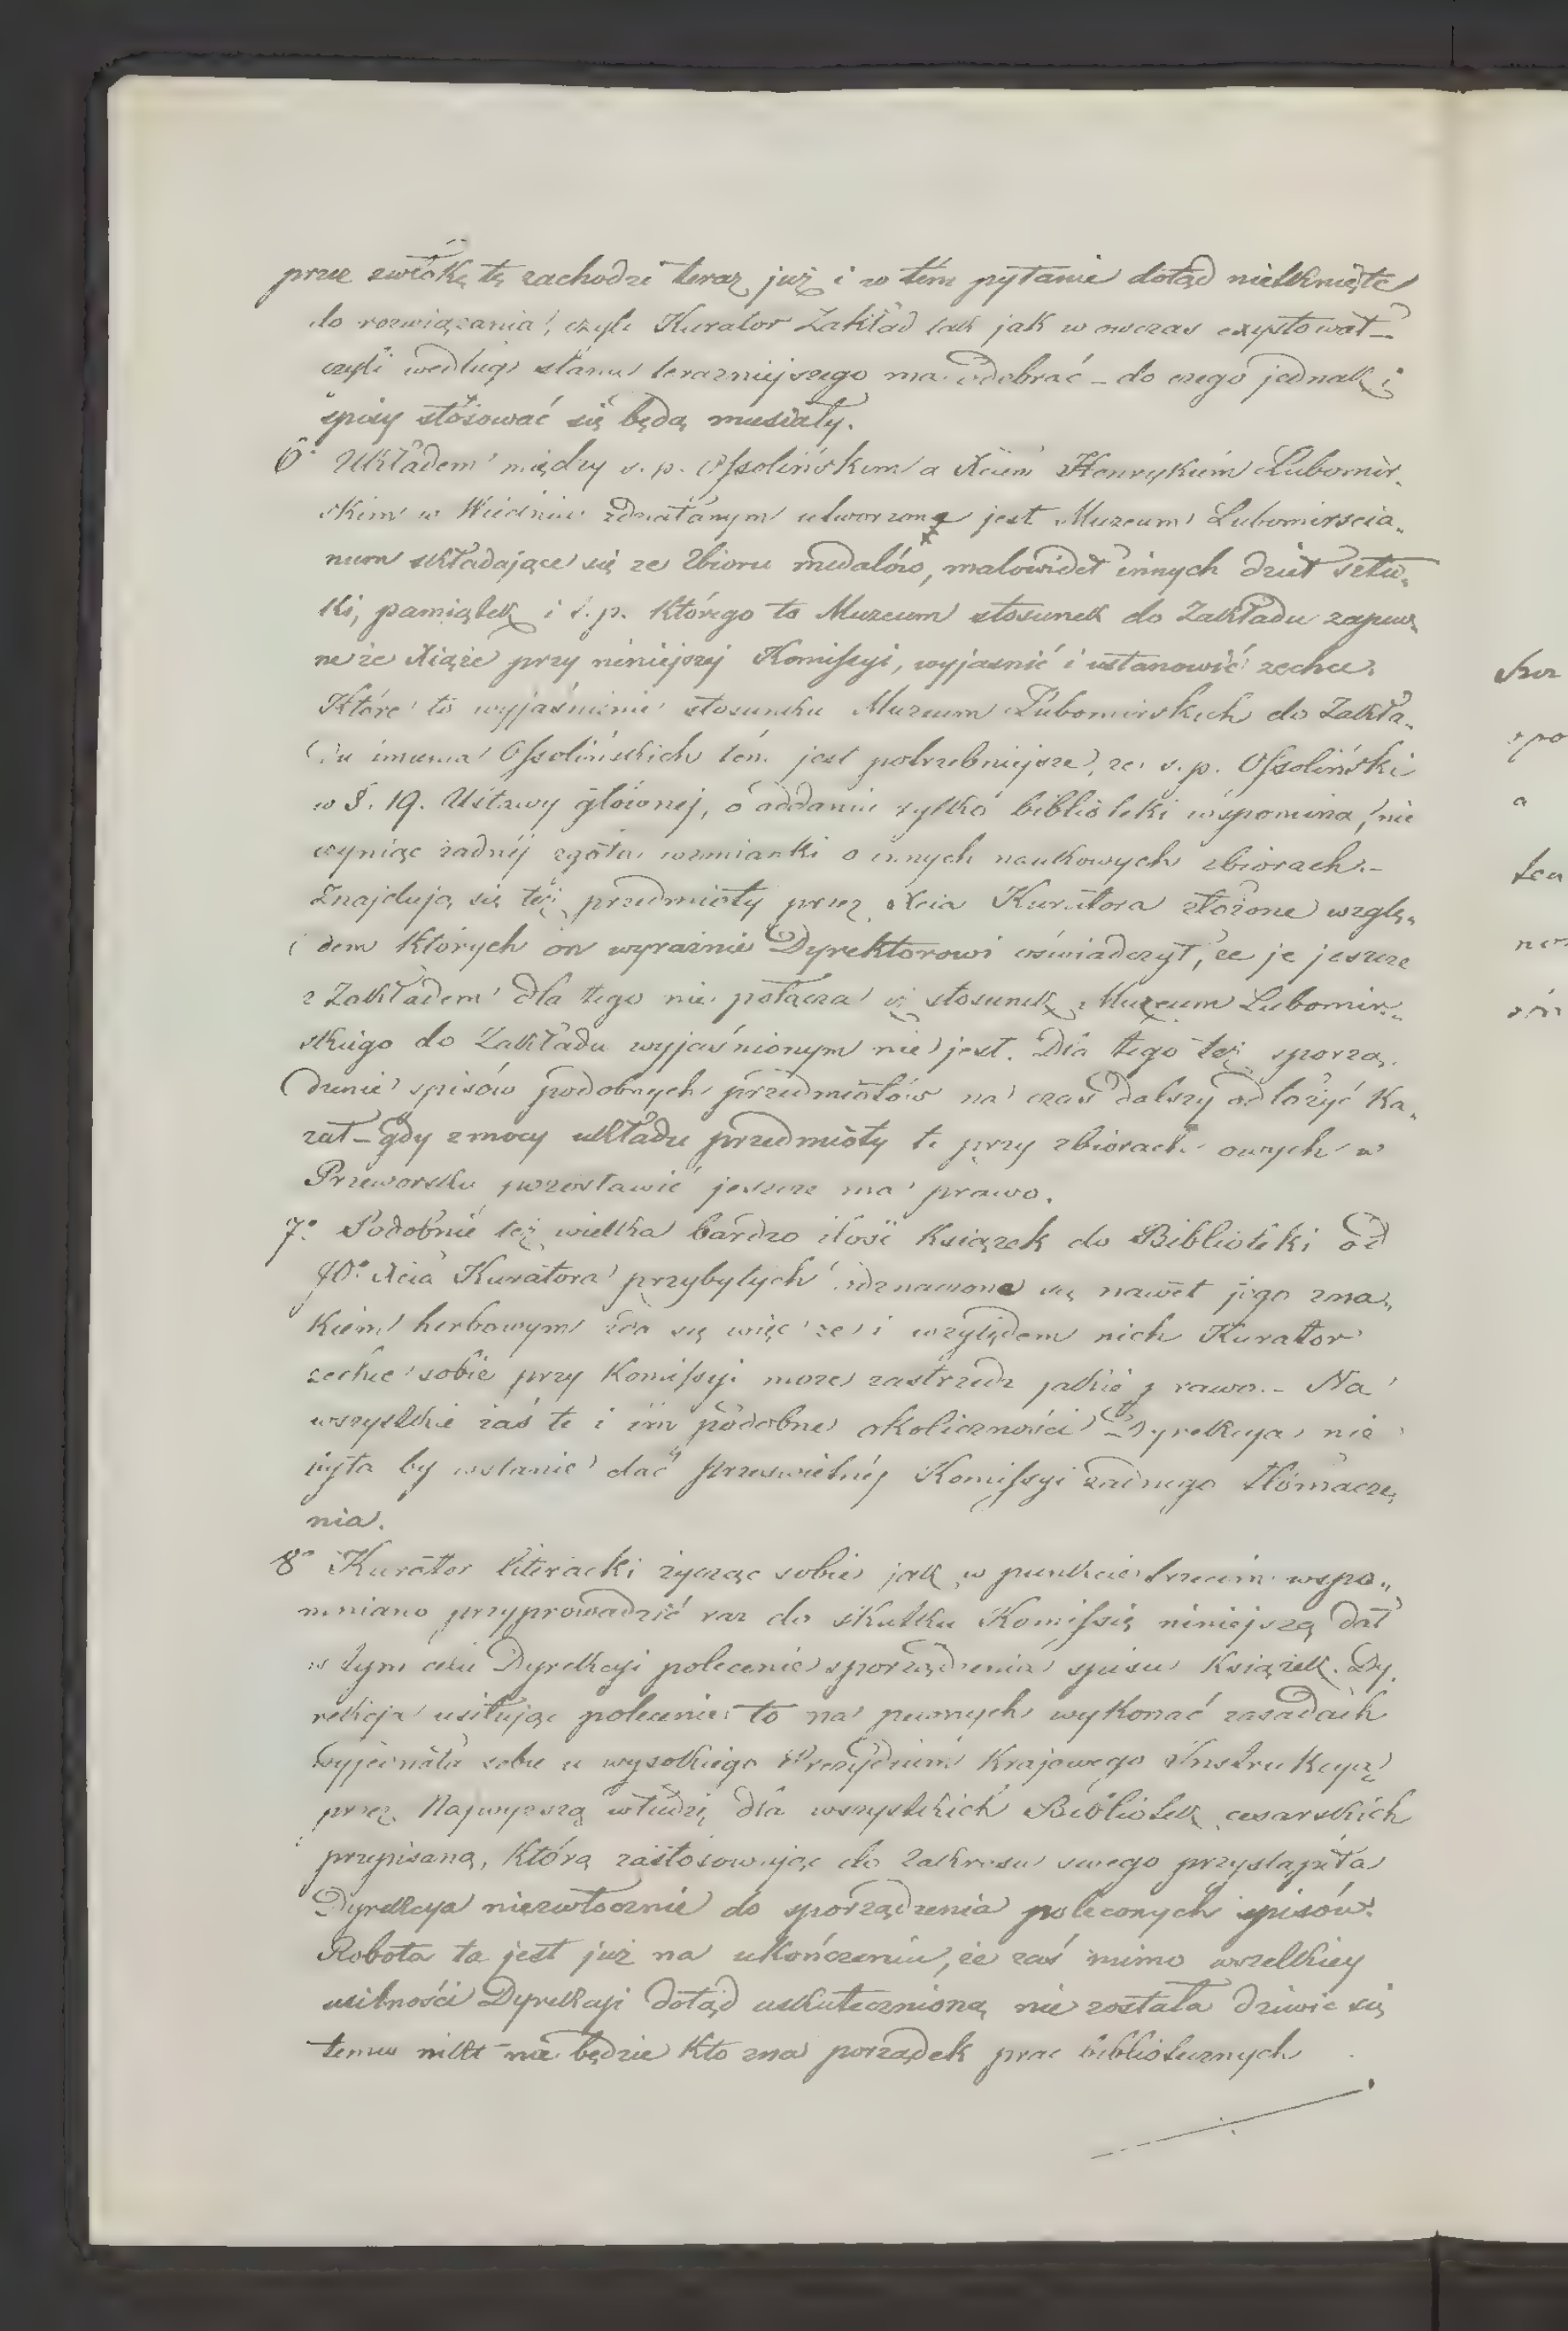 przez zwłokę tę zachodzi teraz już i w tém pytanie dotąd nietknięte
do rozwiązania, czyli Kurator Zakład tak jak w owczas exystował –
czyli według stanu terazniejszego ma odebrać – do czego jednak i
spisy stósować się będą musiały.
6° Układem między ś. p. Ossolińskim a Xciem Henrykiem Lubomir„
skim w Wiedniu zdziałanym utworzone jest Muzeum Lubomirscia„
num składające się ze Zbioru medalów, malowideł innych dzieł sztu„
ki, pamiątek i t. p. którego to Muzeum stosunek do Zakładu zapew„
ne że Xiąże przy niniejszej Komissyi, wyjasnić i ustanowić zechce.
Które to wyjaśnienie stosunku Muzeum Lubomirskich do Zakła„
du imienia Ossolińskich tém jest potrzebniejsze, że ś. p. Ossoliński
w §. 19. Ustawy głównej, o oddaniu tylko biblioteki wspomina, nie
czyniąc żadnéj zgoła wzmianki o innych naukowych zbiorach. –
Znajdują się też przedmioty przez Xcia Kuratora złożone wzglę„
dem których on wyraźnie Dyrektorowi oświadczył, że je jeszcze
z Zakładem dla tego nie połącza iż stosunek Muzeum Lubomir„
skiego do Zakładu wyjaśnionym nie jest. Dla tego też sporzą„
dzenie spisów podobnych przedmiotów na czas dalszy odłożyć ka„
zał – gdy z mocy układu przedmioty te przy zbiorach owych w
Przeworsku pozostawić jeszcze ma prawo.
7° Podobnie też wielka bardzo ilość książek do Biblioteki od
JO. Xcia Kuratora przybyłych odznaczone są nawet jego zna„
kiem herbowym zda się więc że i względem nich Kurator
zechce sobie przy Komissyi może zastrzedz jakie prawo. – Na
wszystkie zaś te i im podobne okoliczności Dyrekcya nie
była by wstanie dać Prześwietnéj Komissyi żadnego tłómacze„
nia.
8° Kurator literacki życząc sobie jak w punkcie trzecim wspo„
mniano przyprowadzić raz do skutku Komissię niniejszą dał
w tym celu Dyrekcyi polecenie sporządzenia spisu książek. Dy„
rekcja usiłując polecenie to na pewnych wykonać zasadach
wyjednała sobie u wysokiego Prezydium Krajowego Instrukcyą
przez Najwyższą władzę dla wszystkich Bibliotek cesarskich
przepisaną, którą zastosowując do zakresu swego przystąpiła
Dyrekcya niezwłocznie do sporządzenia poleconych spisów.
Robota ta jest już na ukończeniu, że zaś mimo wszelkiey
usilności Dyrekcyi dotąd uskutecznioną nie została dziwić się
temu nikt nie będzie kto zna porządek prac bibliotecznych